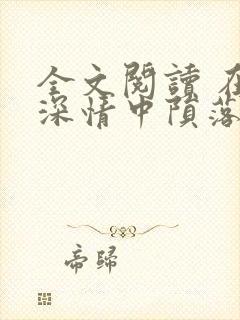 全文閱讀 在
深情中隕落
帝歸